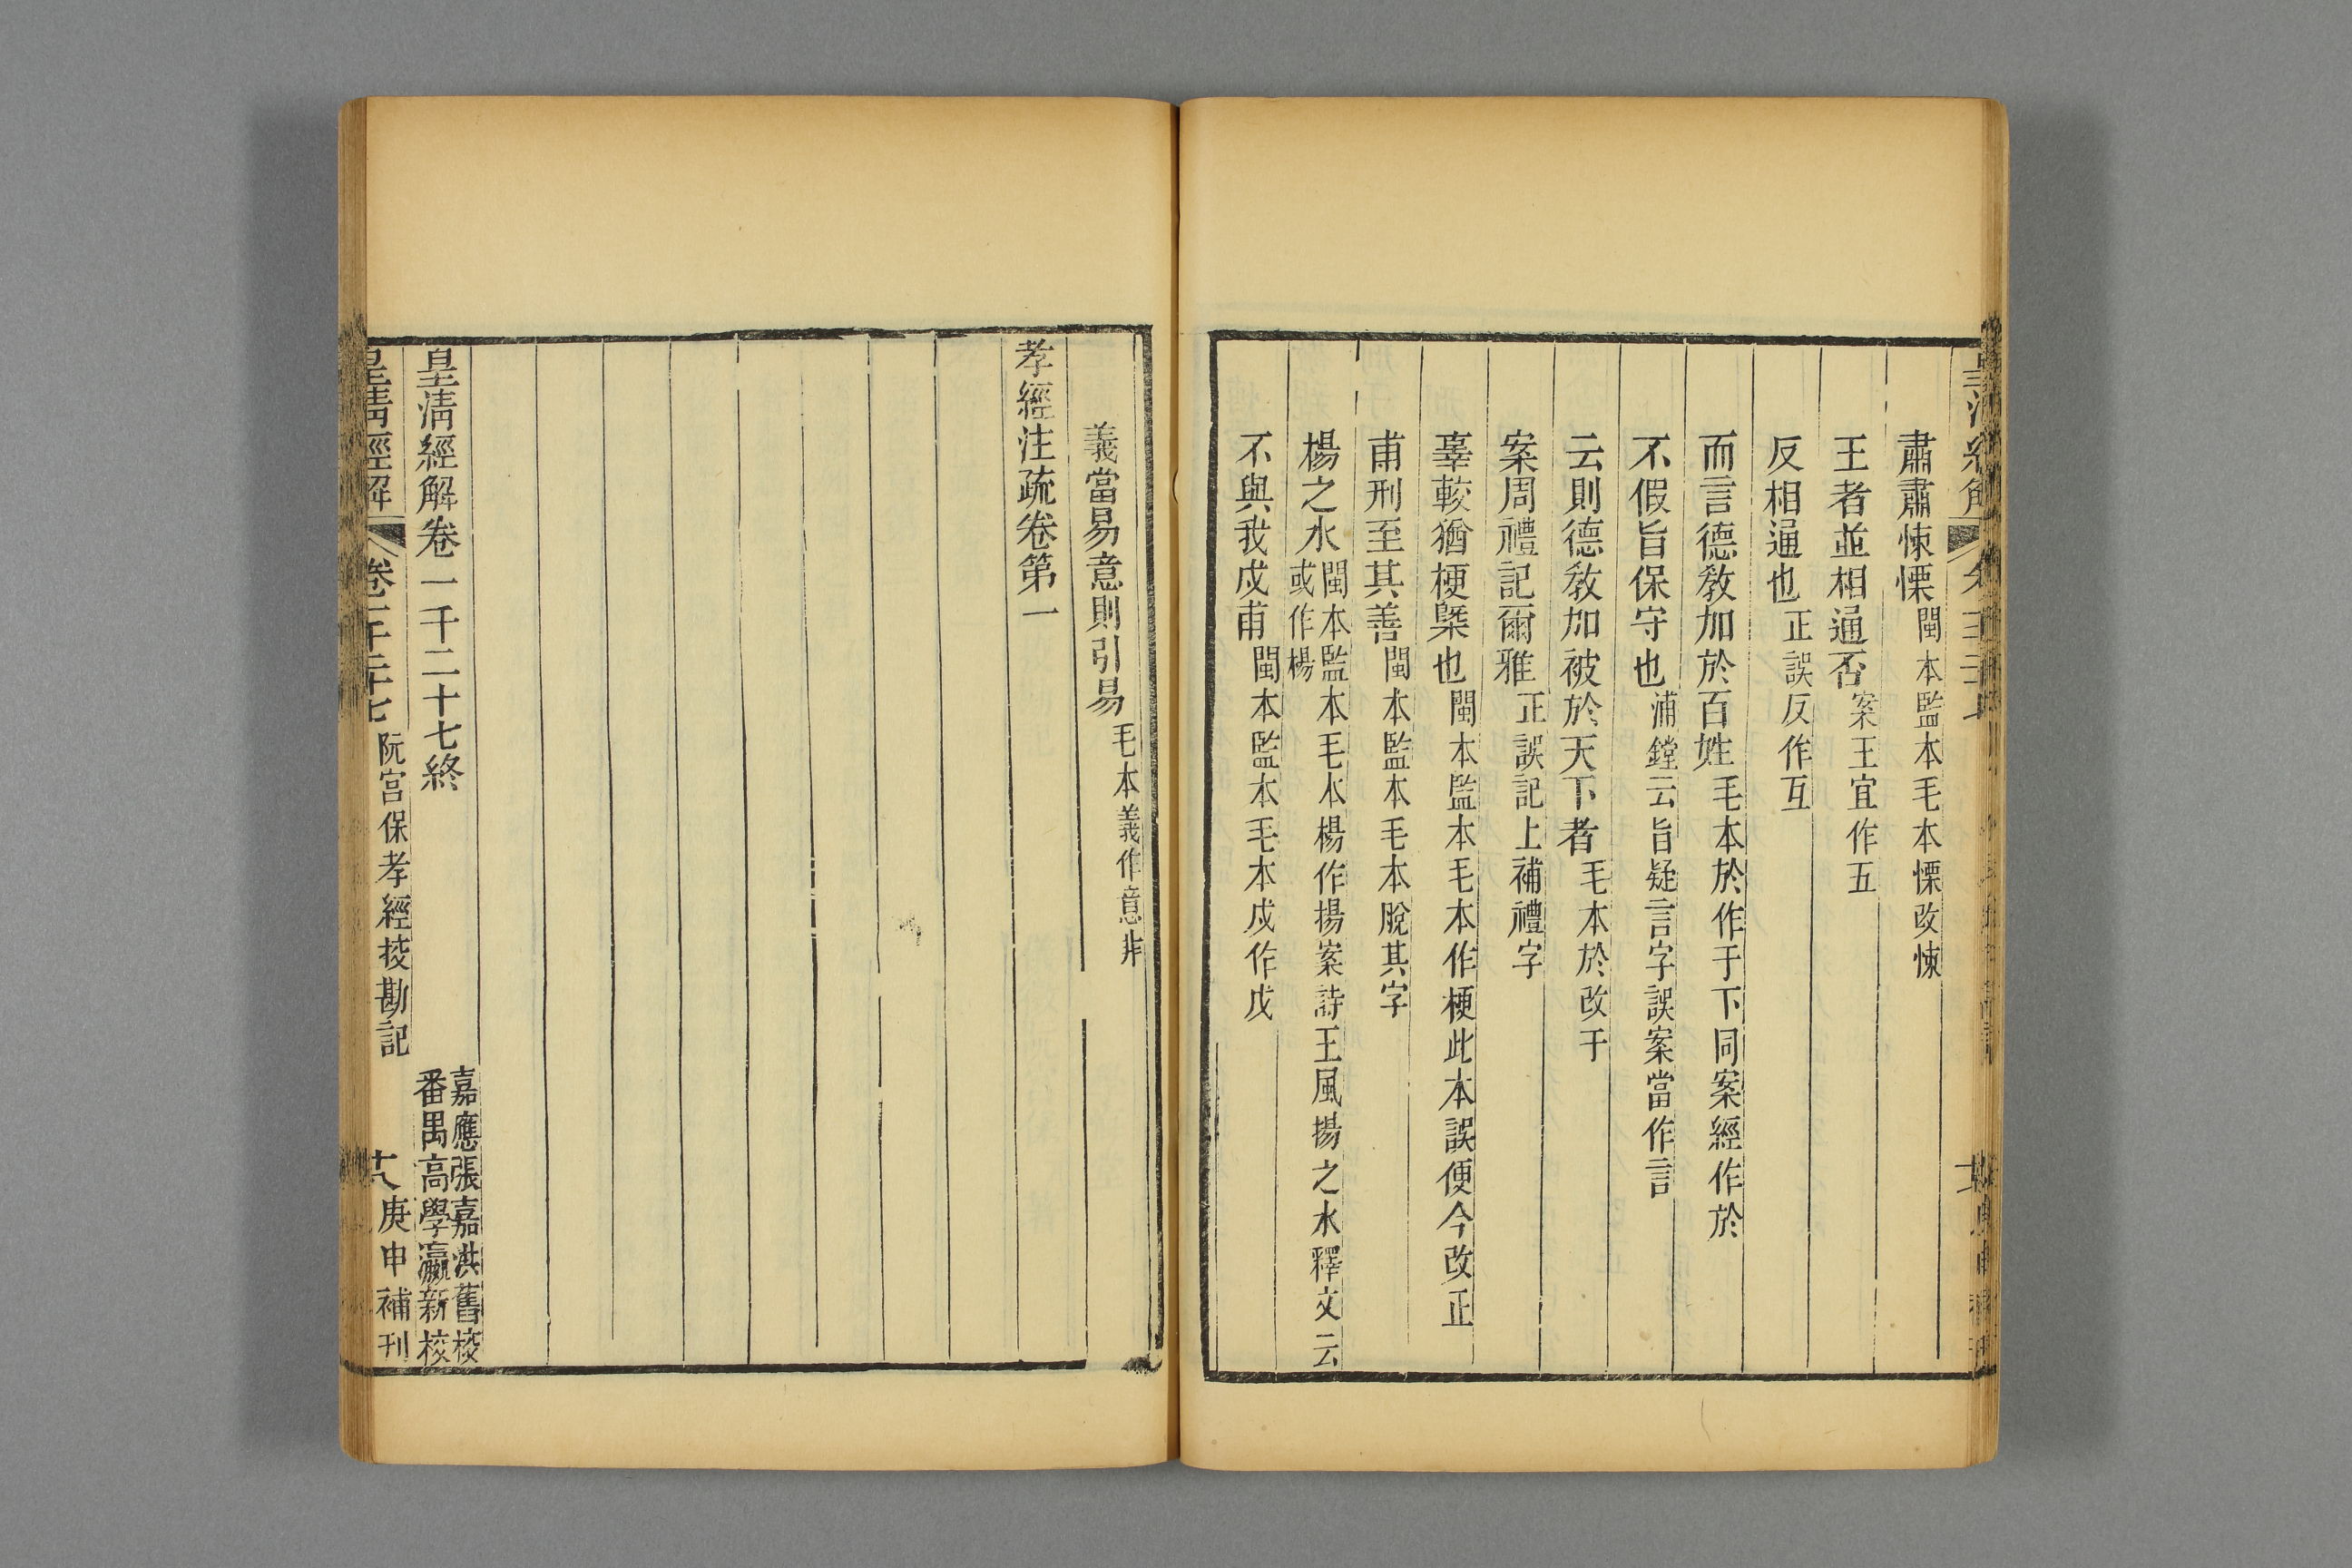 肅肅悚慄閩本監本毛本慄改悚
王者並相通否案王宜作五
反相通也正誤反作互
而言德敎加於百姓毛本於作于下同案經作於
不假旨保守也浦鏜云旨疑言字誤案當作言
云則德敎加被於天下者毛本於改于
案周禮記爾雅正誤記上補禮字
辜較猶梗槩也閩本監本毛本作梗此本誤便今改正
甫刑至其善閩本監本毛本脫其字
楊之水閩本監本毛本楊作揚案詩王風揚之水釋文云
或作楊
不與我戍甫閩本監本毛本戍作戊
義當易意則引易毛本義作意非
孝經注疏卷第一
皇淸經解卷一千二十七終
嘉應張嘉洪舊校
番禺高學瀛新校
皇淸經解 卷一千二十七 阮宮保孝經挍勘記 十八 庚申補刊